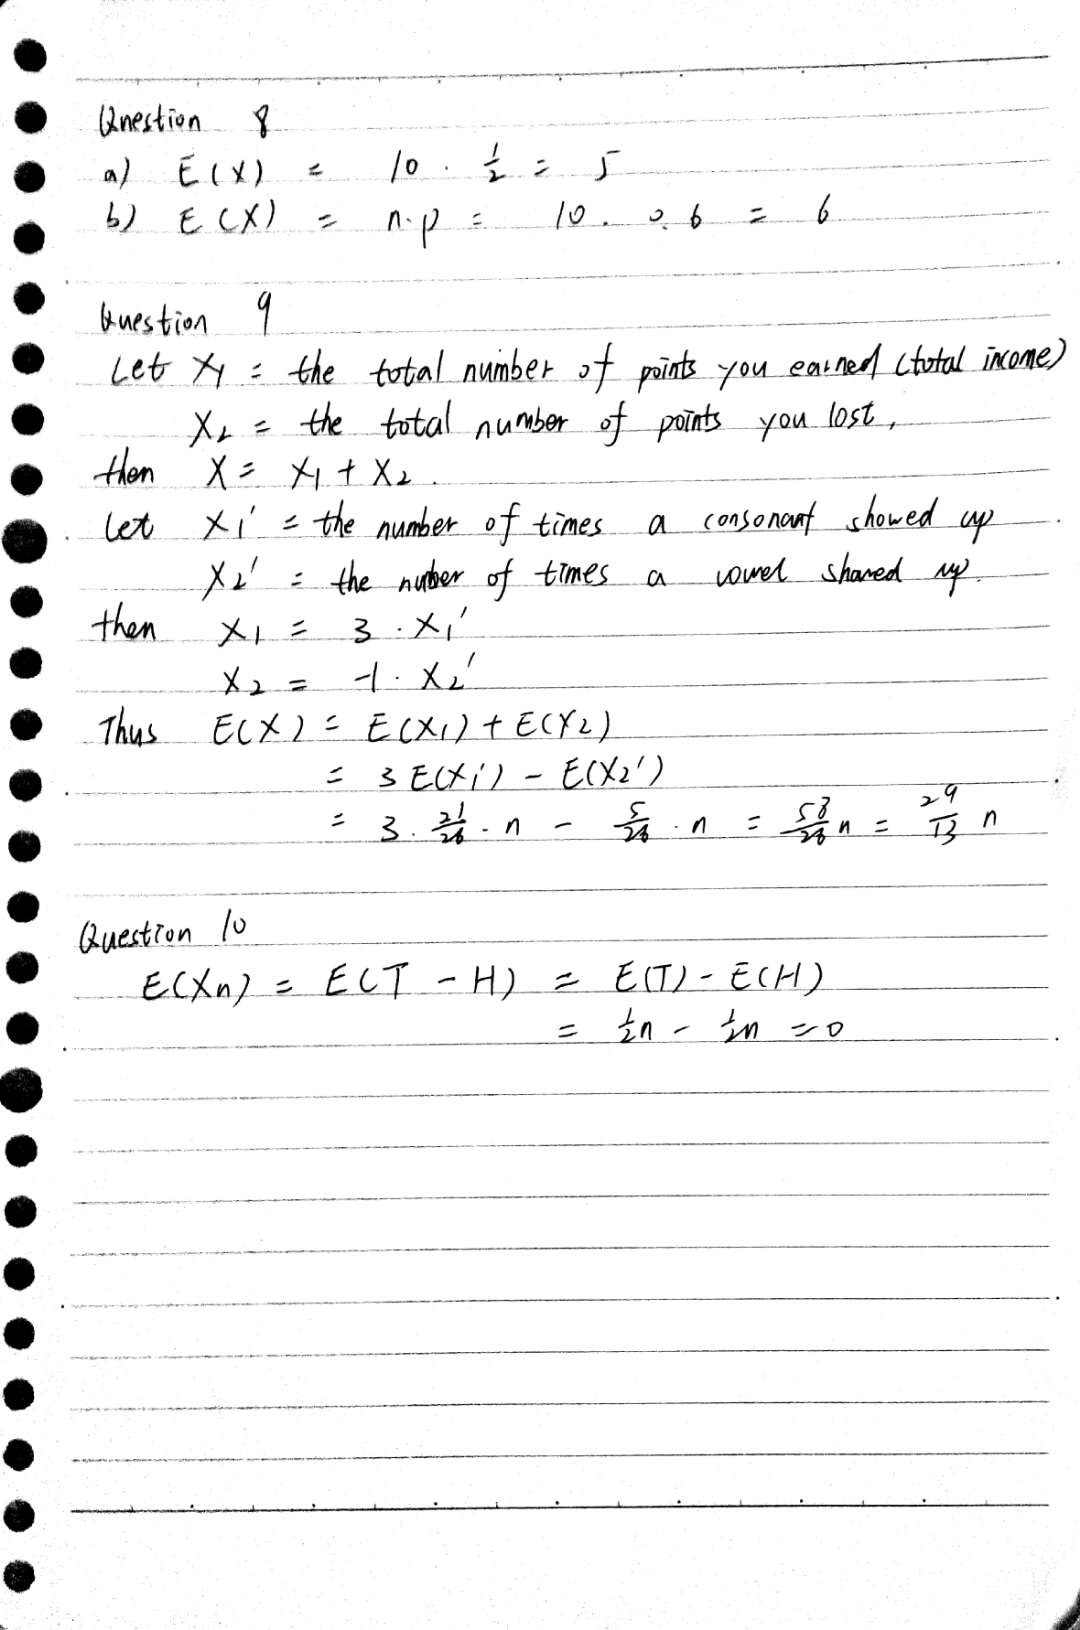 Question 8
a) E(X) = 10 · 1/2 = 5
b) E(X) = n·p = 10 · 0.6 = 6
Question 9
Let X1 = the total number of points you earned (total income)
X2 = the total number of points you lost,
then X = X1 + X2.
Let X1' = the number of times a consonant showed up
X2' = the nuber of times a vowel showed up.
then X1 = 3 · X1'
X2 = -1 · X2'
Thus E(X) = E(X1) + E(X2)
= 3E(X1') - E(X2')
= 3 · 21/26 · n - 5/26 · n = 58/26 n = 29/13 n
Question 10
E(Xn) = E(T - H) = E(T) - E(H)
= 1/2n - 1/2n = 0